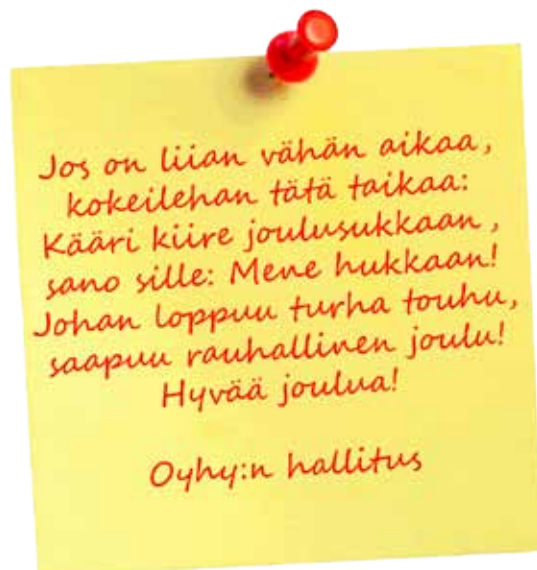 Jos on liian vähän aikaa,
kokeilehan tätä taikaa:
Kääri kiire joulusukkaan,
sano sille: Mene hukkaan!
Johan loppuu turha touhu,
saapuu rauhallinen joulu!
Hyvää joulua!
Oyhy:n hallitus